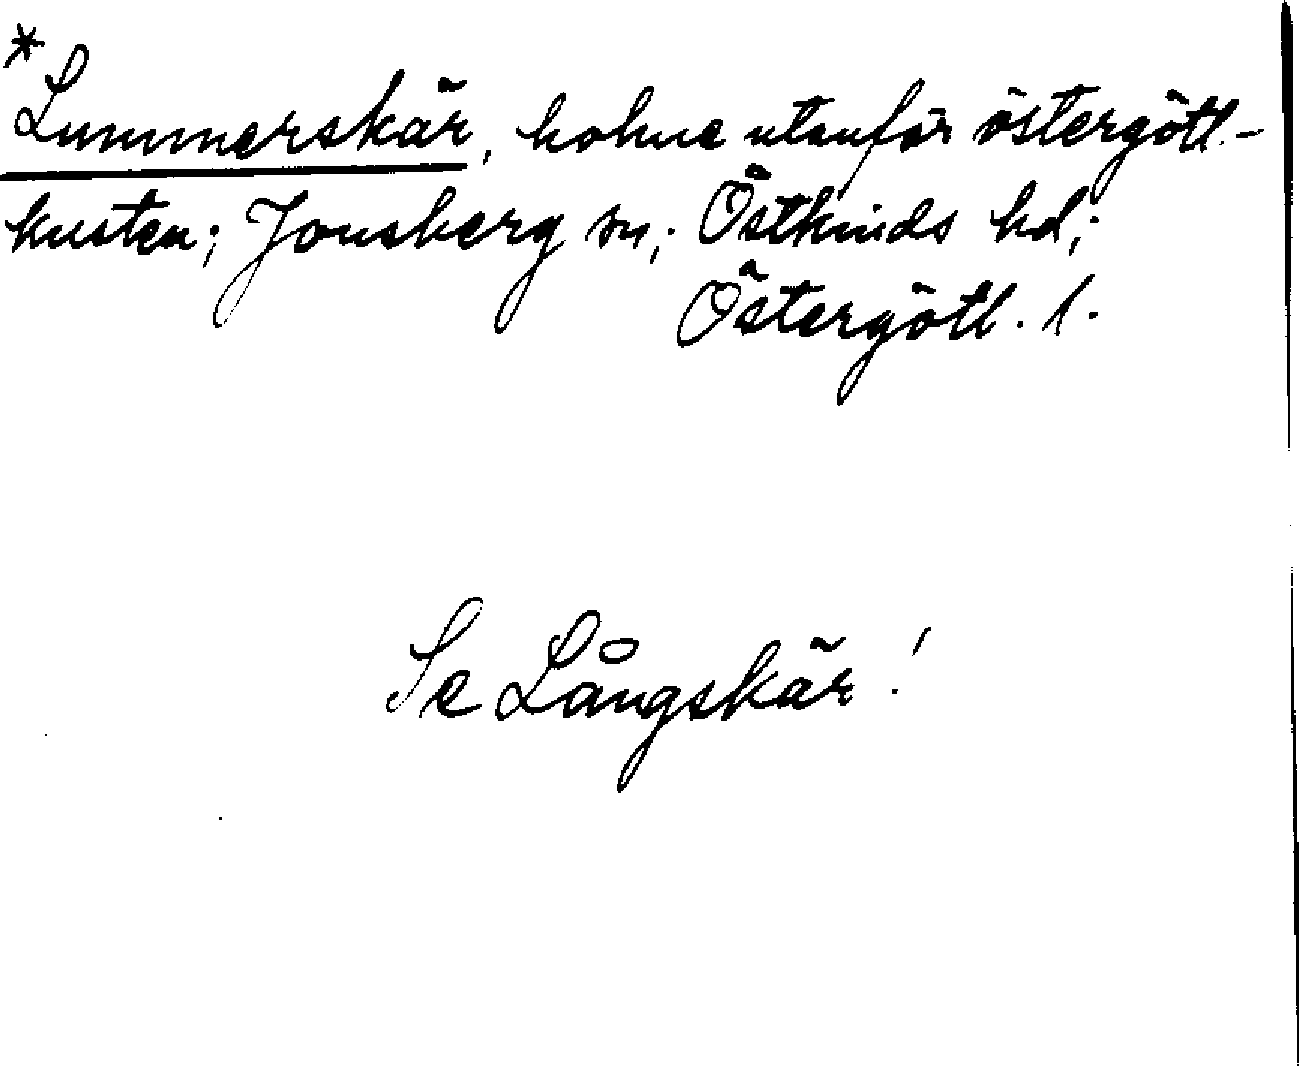 *
Lummerskär, holme utanför östergötl.-
kusten; Jonsberg sn; Östkinds hd;
Östergötl. l.
Se Långskär!